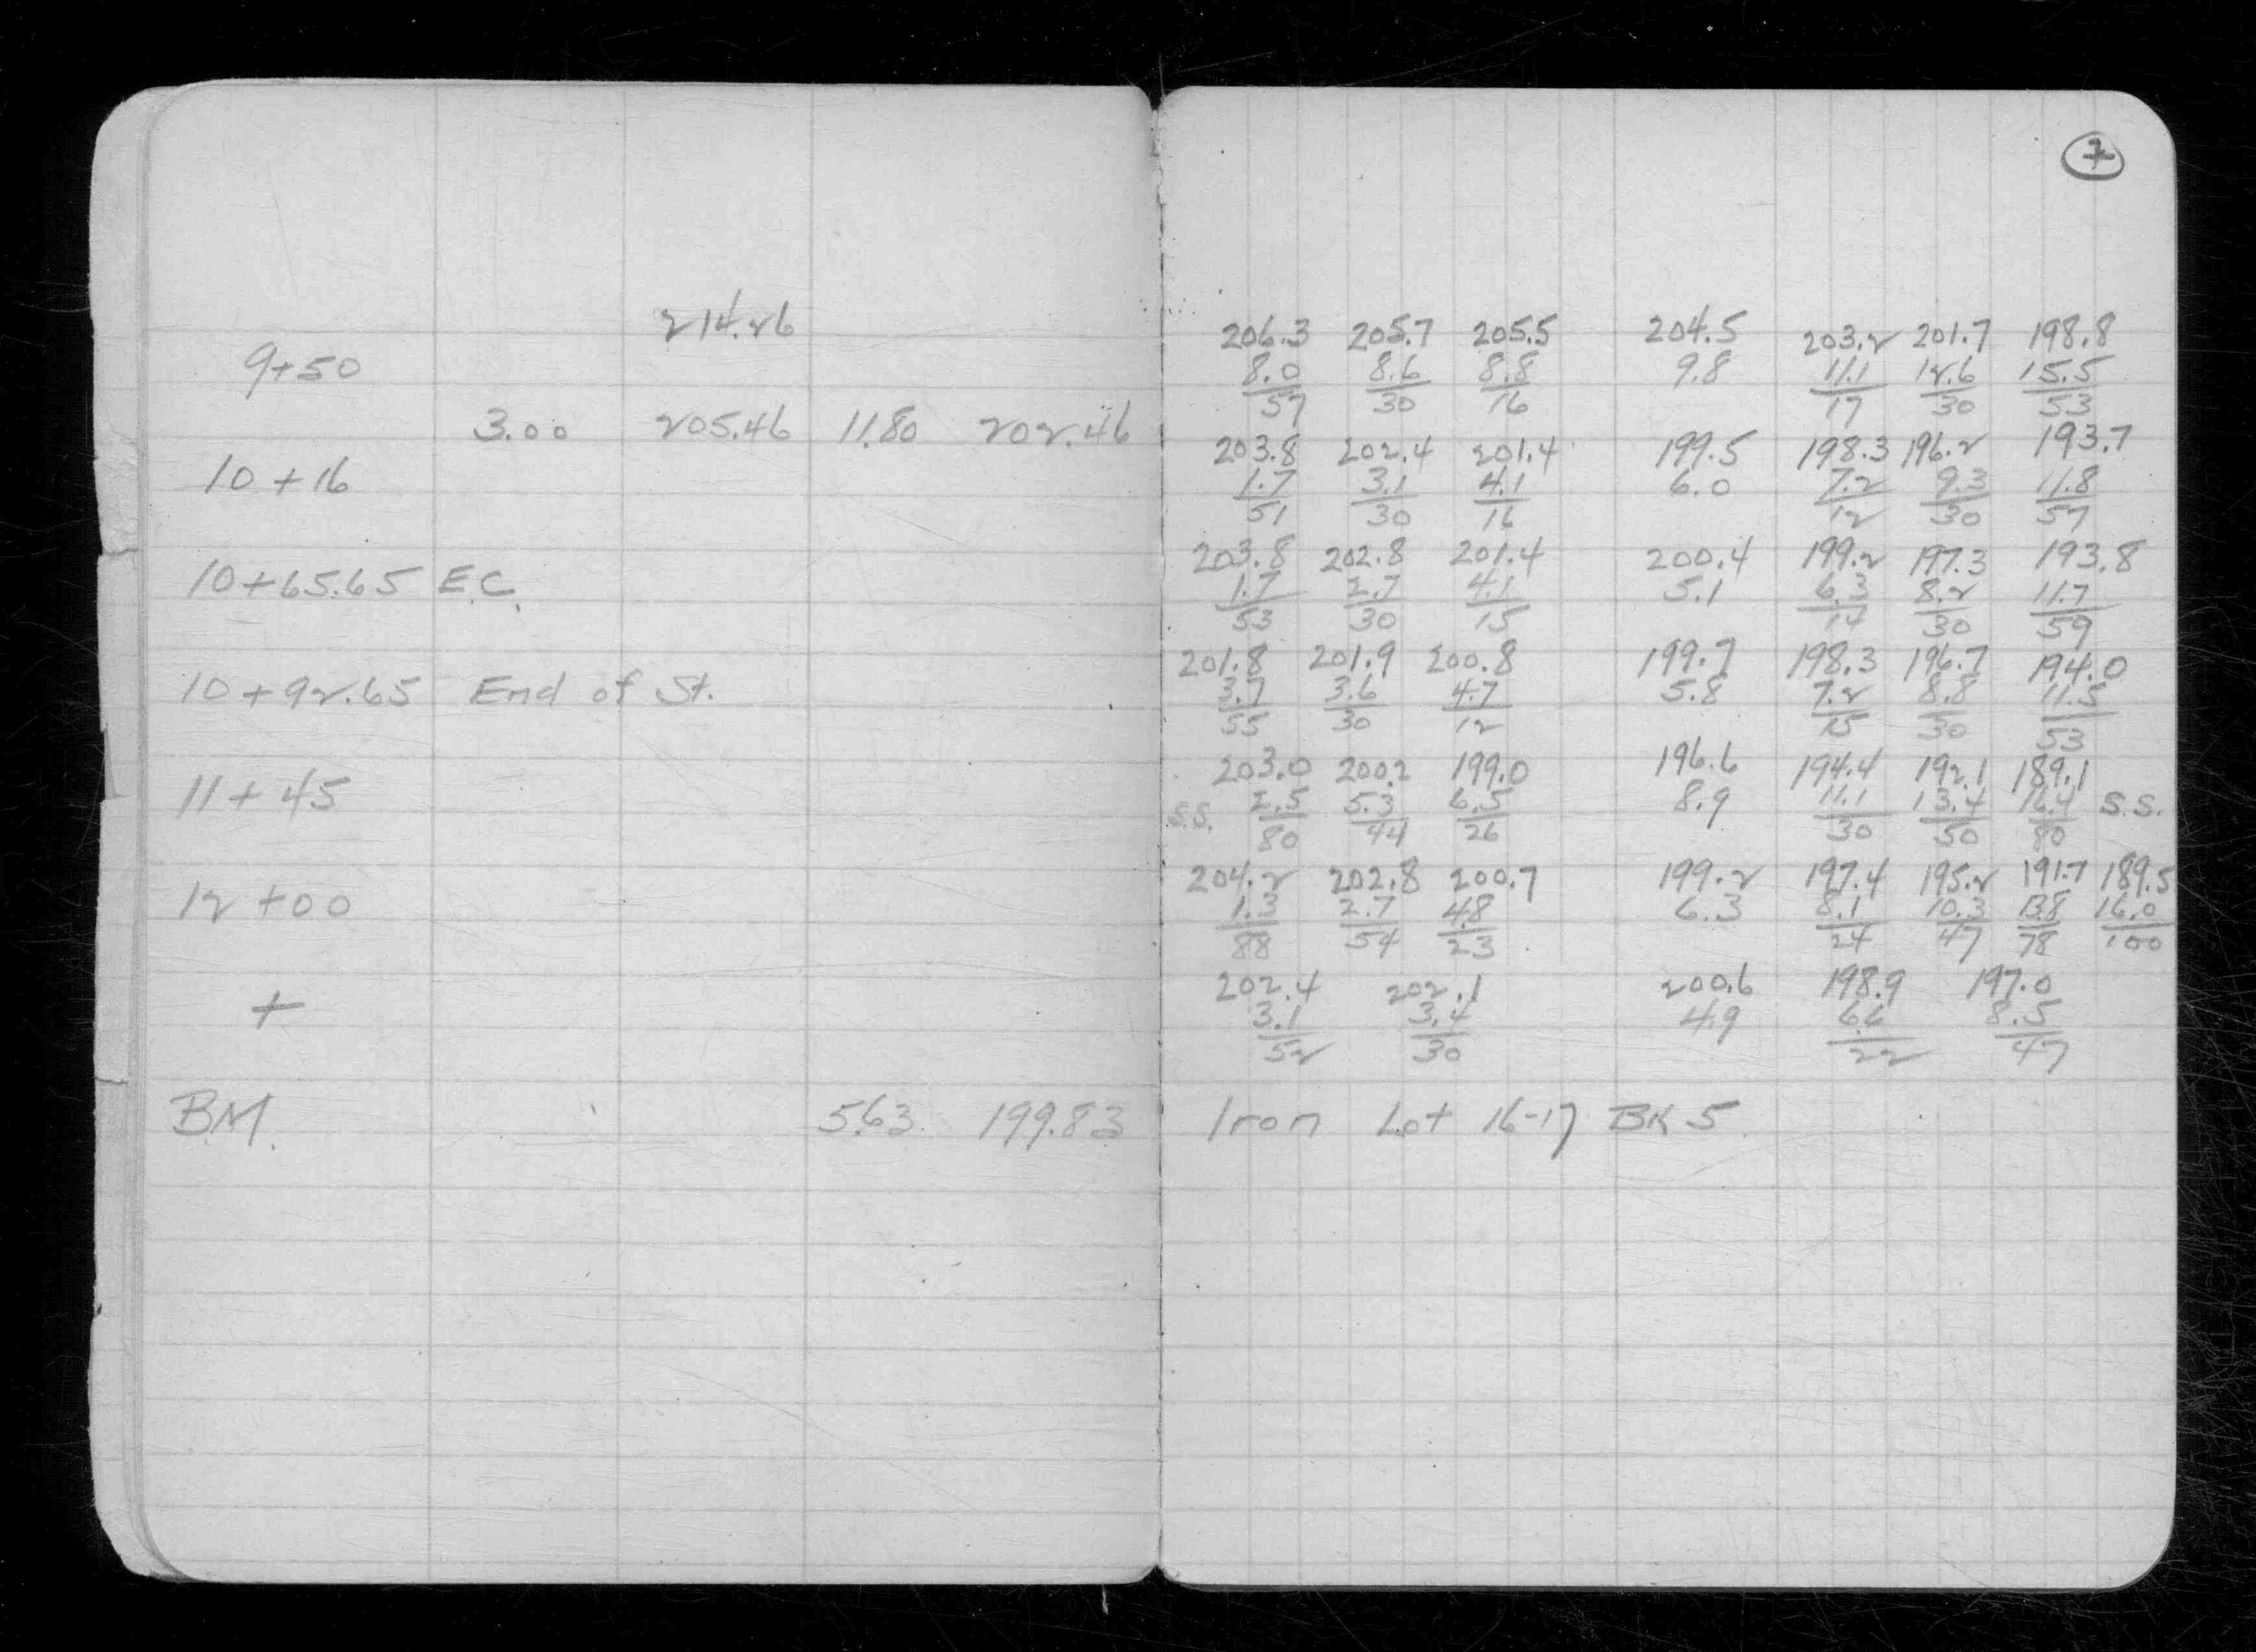 7
214.26
206.3 205.7 205.5 204.5 203.2 201.7 198.8
9+50 8.0 8.6 8.8 9.8 11.1 12.6 15.5
57 30 16 17 30 53
3.00 205.46 11.80 202.46
203.8 202.4 201.4 199.5 198.3 196.2 193.7
10+16 1.7 3.1 4.1 6.0 7.2 9.3 11.8
51 30 16 12 30 57
203.8 202.8 201.4 200.4 199.2 197.3 193.8
10+65.65 E.C. 1.7 2.7 4.1 5.1 6.3 8.2 11.7
53 30 15 14 30 59
201.8 201.9 200.8 199.7 198.3 196.7 194.0
10+92.65 End of St. 3.7 3.6 4.7 5.8 7.2 8.8 11.5
55 30 12 15 30 53
203.0 200.2 199.0 196.6 194.4 192.1 189.1
11+45 S.S. 2.5 5.3 6.5 8.9 11.1 13.4 16.4 S.S.
80 44 26 30 50 80
204.2 202.8 200.7 199.2 197.4 195.2 191.7 189.5
12+00 1.3 2.7 4.8 6.3 8.1 10.3 13.8 16.0
88 54 23 24 47 78 100
202.4 202.1 200.6 198.9 197.0
+ 3.1 3.4 4.9 6.6 8.5
52 30 22 47
B.M. 5.63 199.83 Iron Lot 16-17 BK 5